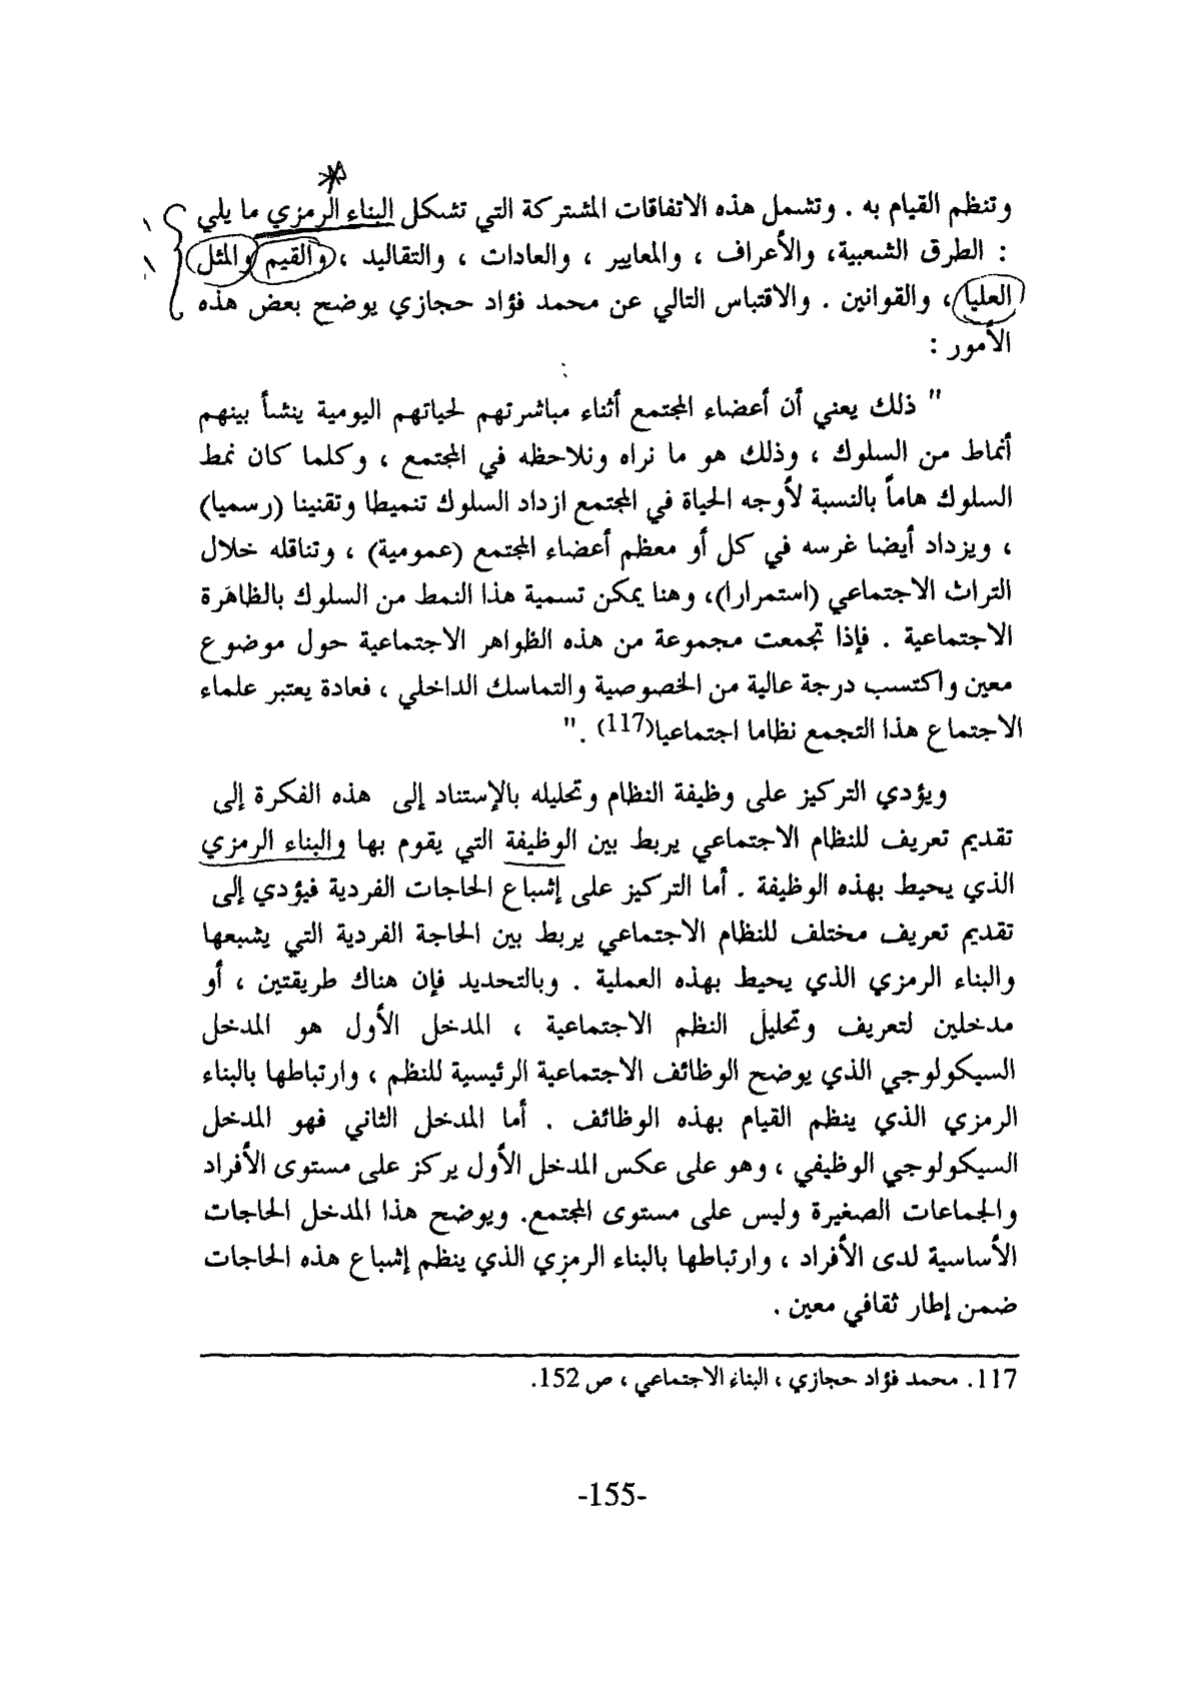 وتنظم القيام به . وتشمل هذه الاتفاقات المشتركة التي تشكل البناء الرمزي ما يلي
: الطرق الشعبية، والأعراف ، والمعايير ، والعادات ، والتقاليد ، والقيم والمثل
العليا، والقوانين . والاقتباس التالي عن محمد فؤاد حجازي يوضح بعض هذه
الأمور :
" ذلك يعني أن أعضاء المجتمع أثناء مباشرتهم لحياتهم اليومية ينشأ بينهم
أنماط من السلوك ، وذلك هو ما نراه ونلاحظه في المجتمع ، وكلما كان نمط
السلوك هاماً بالنسبة لأوجه الحياة في المجتمع ازداد السلوك تنميطا وتقنينا (رسميا)
، ويزداد أيضا غرسه في كل أو معظم أعضاء المجتمع (عمومية) ، وتناقله خلال
التراث الاجتماعي (استمرارا)، وهنا يمكن تسمية هذا النمط من السلوك بالظاهرة
الاجتماعية . فإذا تجمعت مجموعة من هذه الظواهر الاجتماعية حول موضوع
معين واكتسب درجة عالية من الخصوصية والتماسك الداخلي ، فعادة يعتبر علماء
الاجتماع هذا التجمع نظاما اجتماعيا(117) ."
ويؤدي التركيز على وظيفة النظام وتحليله بالإستناد إلى هذه الفكرة إلى
تقديم تعريف للنظام الاجتماعي يربط بين الوظيفة التي يقوم بها والبناء الرمزي
الذي يحيط بهذه الوظيفة . أما التركيز على إشباع الحاجات الفردية فيؤدي إلى
تقديم تعريف مختلف للنظام الاجتماعي يربط بين الحاجة الفردية التي يشبعها
والبناء الرمزي الذي يحيط بهذه العملية . وبالتحديد فإن هناك طريقتين ، أو
مدخلين لتعريف وتحليل النظم الاجتماعية ، المدخل الأول هو المدخل
السيكولوجي الذي يوضح الوظائف الاجتماعية الرئيسية للنظم ، وارتباطها بالبناء
الرمزي الذي ينظم القيام بهذه الوظائف . أما المدخل الثاني فهو المدخل
السيكولوجي الوظيفي ، وهو على عكس المدخل الأول يركز على مستوى الأفراد
والجماعات الصغيرة وليس على مستوى المجتمع. ويوضح هذا المدخل الحاجات
الأساسية لدى الأفراد ، وارتباطها بالبناء الرمزي الذي ينظم إشباع هذه الحاجات
ضمن إطار ثقافي معين .
117. محمد فؤاد حجازي ، البناء الاجتماعي ، ص 152.
-155-